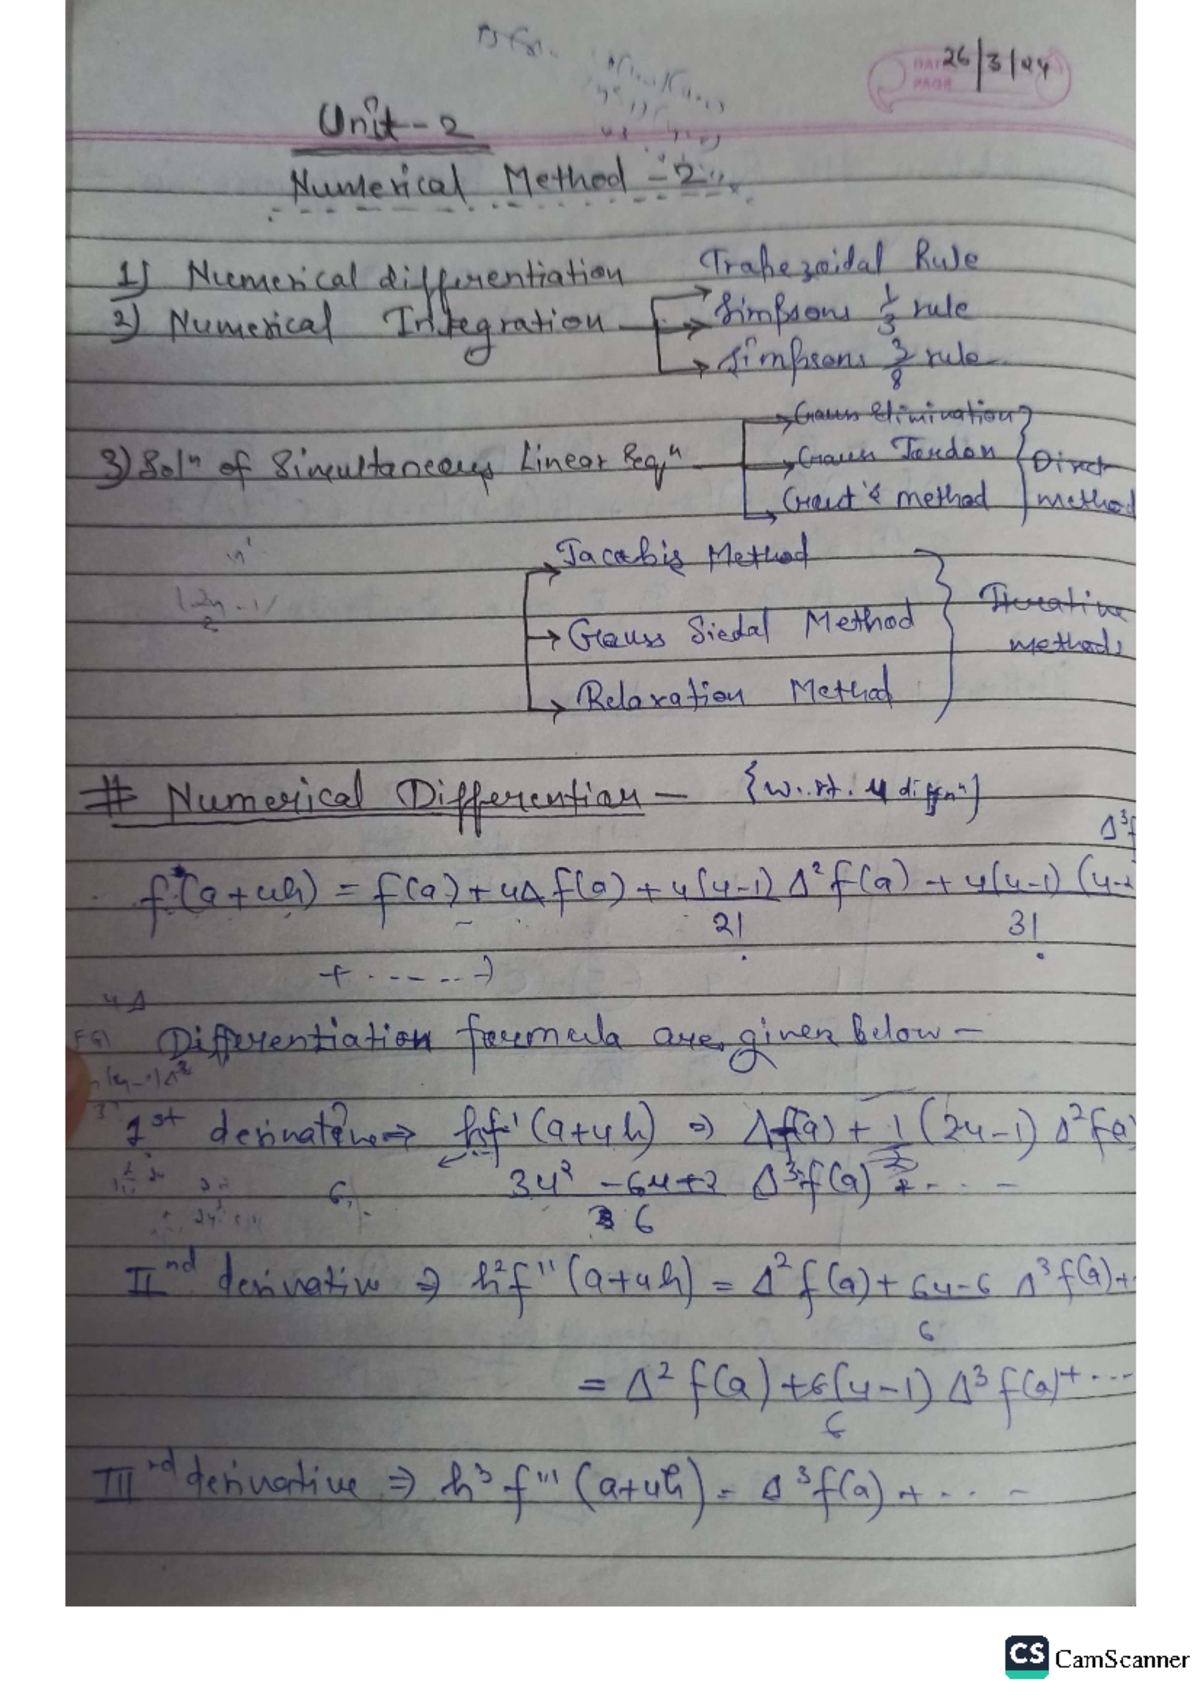 26/3/24
Unit-2
Numerical Method -2
1) Numerical differentiation
2) Numerical Integration → Trapezoidal Rule
→ Simpsons 1/3 rule
→ Simpsons 3/8 rule
3) Solⁿ of Simultaneous Linear Eqⁿ → Gauss Elimination
→ Gauss Jordon
→ Crout's method
} Direct method
→ Jacobis Method
→ Gauss Siedal Method
→ Relaxation Method
} Iterative methods
# Numerical Differention – {w.r.t. u diffnⁿ}
f(a+uh) = f(a) + uΔf(a) + u(u-1)/2! Δ²f(a) + u(u-1)(u-2/3! Δ³f
+ ------)
Differentiation formula are given below –
1st derivative ⇒ hf'(a+uh) ⇒ Δf(a) + 1/2 (2u-1) Δ²f(a)
3u²-6u+2/6 Δ³f(a) + ----
IInd derivative ⇒ h²f''(a+uh) = Δ²f(a) + 6u-6/6 Δ³f(a)+
= Δ²f(a) + 6(u-1)/6 Δ³f(a)+ ----
IIIrd derivative ⇒ h³f'''(a+uh) = Δ³f(a) + ----
CS CamScanner